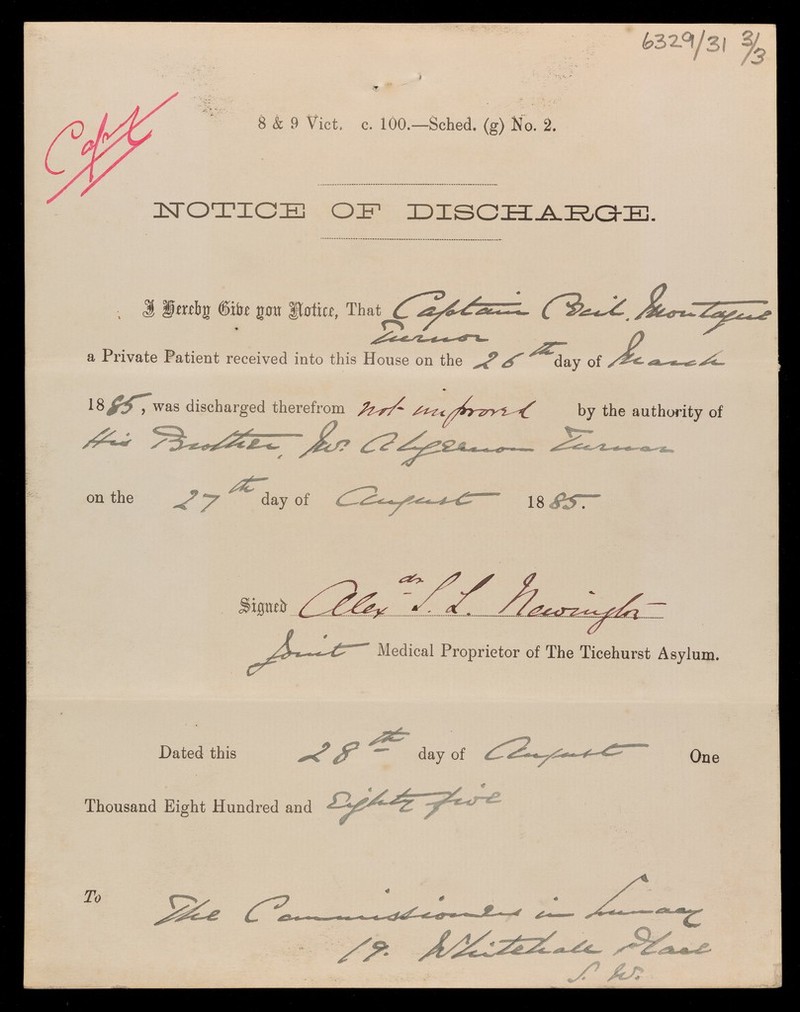 6329/31 3/3
Copy
8 & 9 Vict. c. 100.—Sched. (g) No. 2.
NOTICE OF DISCHARGE.
I Hereby Give you Notice, That Captain Cecil Montague
Turnor
a Private Patient received into this House on the 26th day of March
1885, was discharged therefrom not improved by the authority of
His Brother, Mr. Algernon Turnor
on the 27th day of August 1885.
Signed Alexdr S. L. Newington
Joint Medical Proprietor of The Ticehurst Asylum.
Dated this 28th day of August One
Thousand Eight Hundred and Eighty five
To The Commissioners in Lunacy
19. Whitehall Place
S. W.